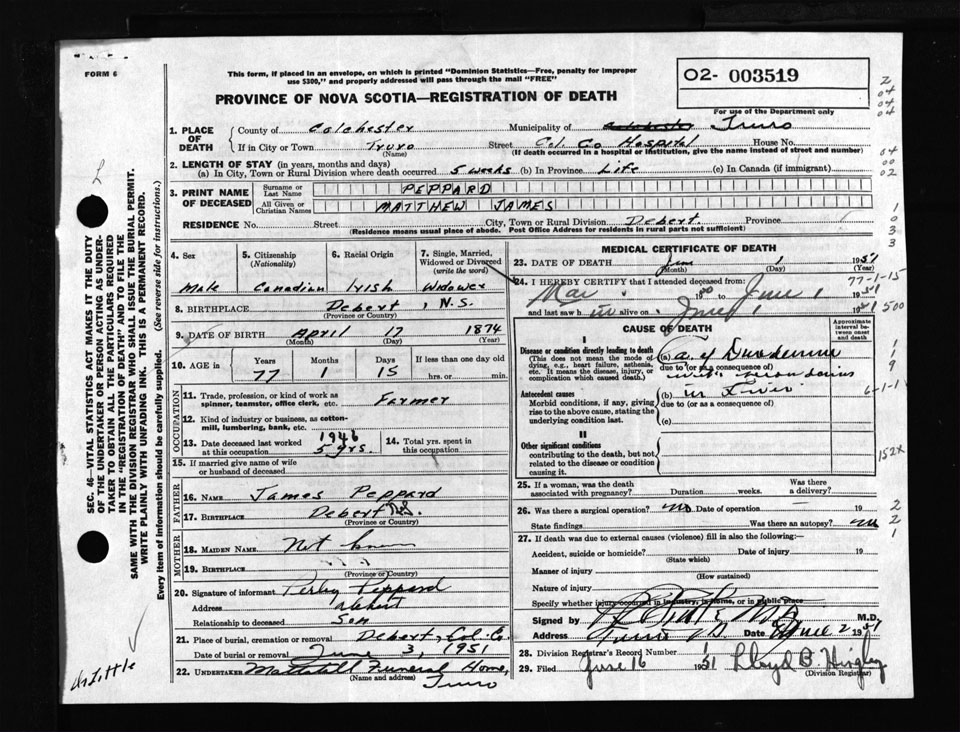 FORM 6
This form, if placed in an envelope, on which is printed "Dominion Statistics—Free, penalty for improper
use $300," and properly addressed will pass through the mail "FREE"
O2- 003519
For use of the Department only
PROVINCE OF NOVA SCOTIA—REGISTRATION OF DEATH
1. PLACE OF DEATH { County of Colchester Municipality of Truro
If in City or Town Truro (Name) Street Col. Co Hospital House No.
(If death occurred in a hospital or institution, give the name instead of street and number)
2. LENGTH OF STAY (in years, months and days)
(a) In City, Town or Rural Division where death occurred 5 weeks (b) In Province Life (c) In Canada (if immigrant)
3. PRINT NAME OF DECEASED { Surname or Last Name PEPPARD
All Given or Christian Names MATTHEW JAMES
RESIDENCE No. Street City, Town or Rural Division Debert. Province
(Residence means usual place of abode. Post Office Address for residents in rural parts not sufficient)
4. Sex Male
5. Citizenship (Nationality) Canadian
6. Racial Origin Irish
7. Single, Married, Widowed or Divorced (write the word) Widower
8. BIRTHPLACE Debert, N.S.
(Province or Country)
9. DATE OF BIRTH April 17 1874
(Month) (Day) (Year)
10. AGE in Years 77 Months 1 Days 15 If less than one day old
hrs. or min.
OCCUPATION
11. Trade, profession, or kind of work as spinner, teamster, office clerk, etc. Farmer
12. Kind of industry or business, as cotton-mill, lumbering, bank, etc.
13. Date deceased last worked at this occupation 1946 5 yrs.
14. Total yrs. spent in this occupation
15. If married give name of wife or husband of deceased
FATHER
16. Name James Peppard
17. Birthplace Debert N.S.
(Province or Country)
MOTHER
18. Maiden Name Not known
19. Birthplace
(Province or Country)
20. Signature of informant Perley Peppard
Address Debert
Relationship to deceased Son
21. Place of burial, cremation or removal Debert, Col. Co.
Date of burial or removal June 3, 1951
22. Undertaker Mattatall Funeral Home,
(Name and address) Truro
MEDICAL CERTIFICATE OF DEATH
23. DATE OF DEATH June 1 1951
(Month) (Day) (Year)
24. I HEREBY CERTIFY that I attended deceased from
Mar. to June 1 1951
and last saw h im alive on June 1 1951
CAUSE OF DEATH
Approximate interval between onset and death
I
Disease or condition directly leading to death
(This does not mean the mode of dying, e.g., heart failure, asthenia, etc. It means the disease, injury, or complication which caused death.)
(a) Ca. of Duodenum
due to (or as a consequence of)
Antecedent causes
Morbid conditions, if any, giving rise to the above cause, stating the underlying condition last.
(b) in Liver
due to (or as a consequence of)
(c)
II
Other significant conditions
contributing to the death, but not related to the disease or condition causing it.
25. If a woman, was the death associated with pregnancy? Duration weeks. Was there a delivery?
26. Was there a surgical operation? no Date of operation 19
State findings Was there an autopsy? no
27. If death was due to external causes (violence) fill in also the following:
Accident, suicide or homicide? Date of injury 19
(State which)
Manner of injury
(How sustained)
Nature of injury
Specify whether injury occurred in industry, in home, or in public place
Signed by M.D.
Address Truro Date June 2 1951
28. Division Registrar's Record Number
29. Filed June 16 1951 Lloyd B. Hingley
(Division Registrar)
77-1-15
500
6-1-1
152X
SEC. 46—VITAL STATISTICS ACT MAKES IT THE DUTY
OF THE UNDERTAKER OR PERSON ACTING AS UNDER-
TAKER TO OBTAIN ALL THE PARTICULARS REQUIRED
IN THE "REGISTRATION OF DEATH" AND TO FILE THE
SAME WITH THE DIVISION REGISTRAR WHO SHALL ISSUE THE BURIAL PERMIT.
WRITE PLAINLY WITH UNFADING INK. THIS IS A PERMANENT RECORD.
Every item of information should be carefully supplied. (See reverse side for instructions.)